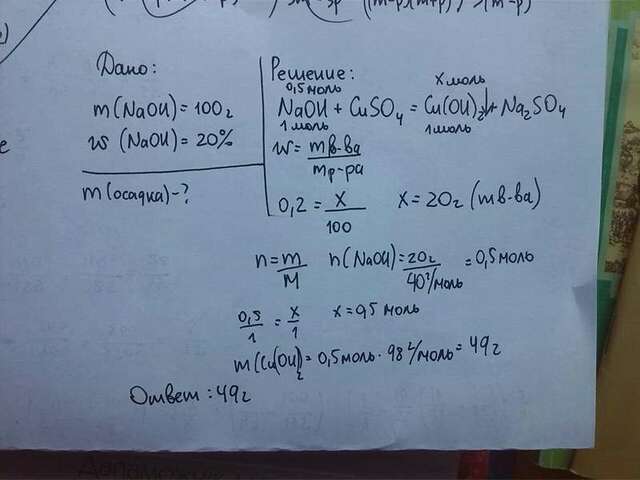 Дано:
m(NaOH)=100г
w (NaOH)=20%
m(осадка)-?
Решение:
0,5моль
x моль
NaOH + CuSO4 = Cu(OH)2↓+ Na2SO4
1 моль
1 моль
w= mв-ва / mр-ра
0,2 = x / 100 x = 20г (mв-ва)
n = m / M n(NaOH) = 20г / 40г/моль = 0,5моль
0,5 / 1 = x / 1 x = 0,5 моль
m(Cu(OH)2 = 0,5моль · 98г/моль = 49г
Ответ: 49г